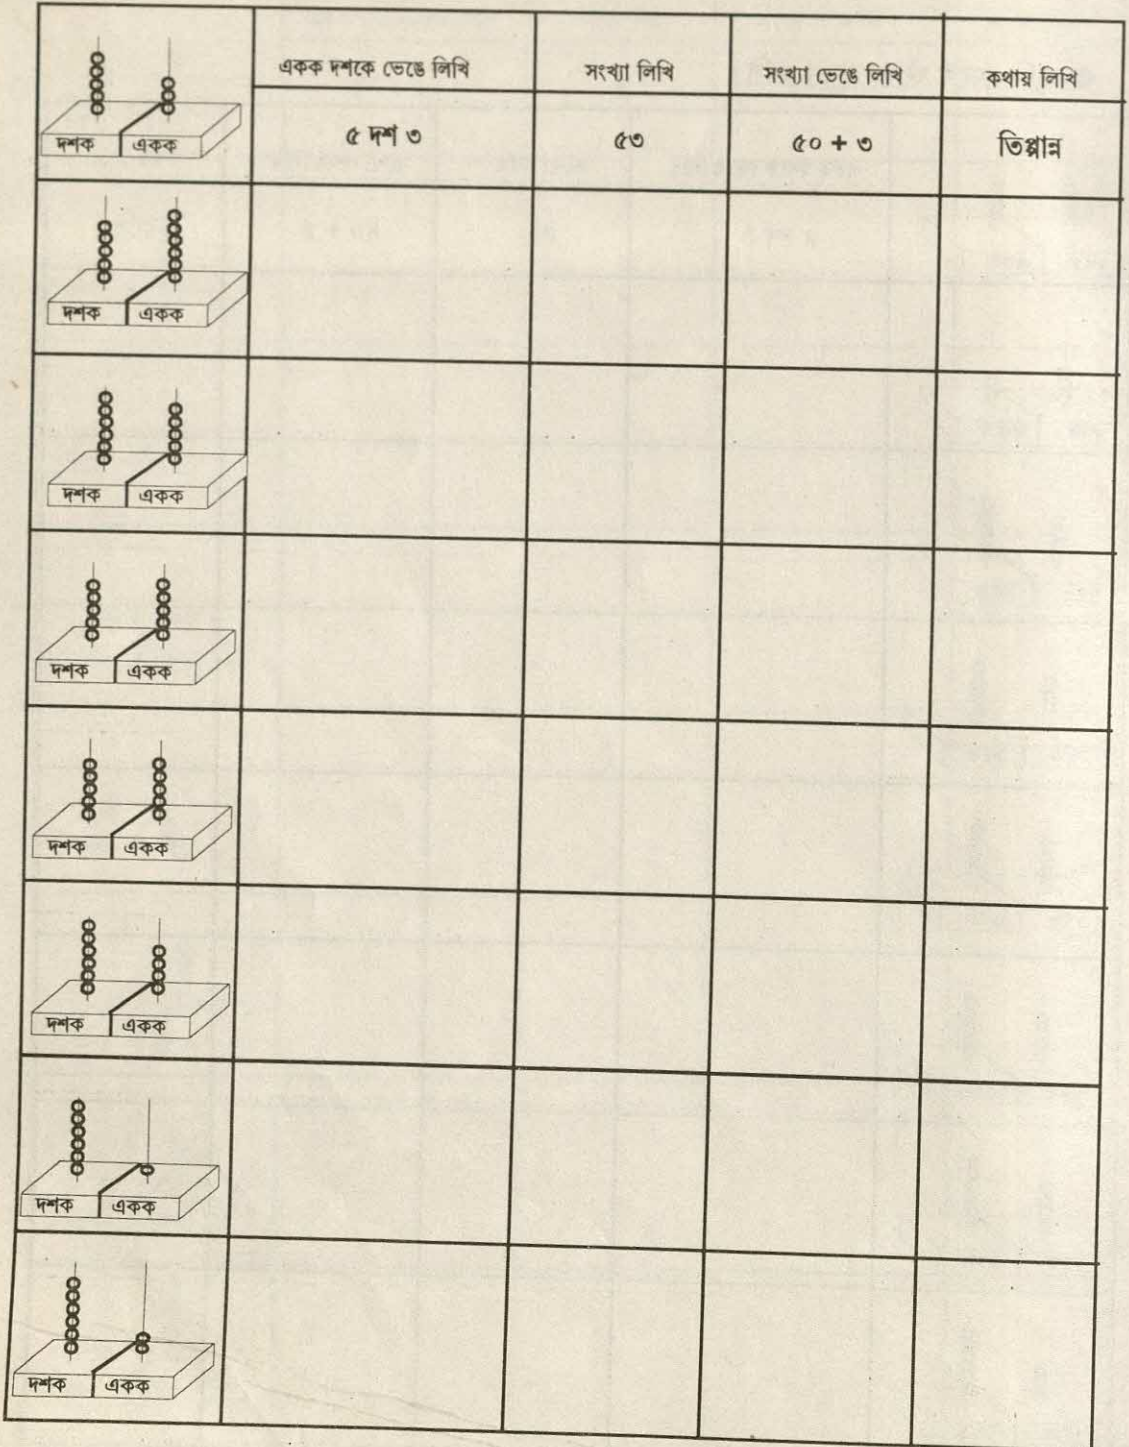 একক দশকে ভেঙে লিখি সংখ্যা লিখি সংখ্যা ভেঙে লিখি কথায় লিখি
দশক একক ৫ দশ ৩ ৫৩ ৫০ + ৩ তিপ্পান্ন
দশক একক
দশক একক
দশক একক
দশক একক
দশক একক
দশক একক
দশক একক